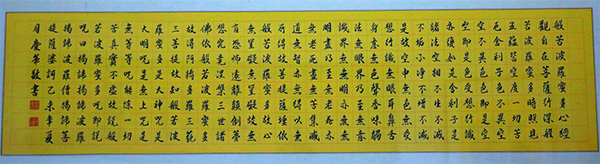 般若波羅蜜多心經
觀自在菩薩行深般
若波羅蜜多時照見
五蘊皆空度一切苦
厄舍利子色不異空
空不異色色即是空
空即是色受想行識
亦復如是舍利子是
諸法空相不生不滅
不垢不淨不增不減
是故空中無色無受
想行識無眼耳鼻舌
身意無色聲香味觸
法無眼界乃至無意
識界無無明亦無無
明盡乃至無老死亦
無老死盡無苦集滅
道無智亦無得以無
所得故菩提薩埵依
般若波羅蜜多故心
無罣礙無罣礙故無
有恐怖遠離顛倒夢
想究竟涅槃三世諸
佛依般若波羅蜜多
故得阿耨多羅三藐
三菩提故知般若波
羅蜜多是大神咒是
大明咒是無上咒是
無等等咒能除一切
苦真實不虛故說般
若波羅蜜多咒即說
咒曰揭諦揭諦波羅
揭諦波羅僧揭諦菩
提薩婆訶己未年夏
月慶華敬書